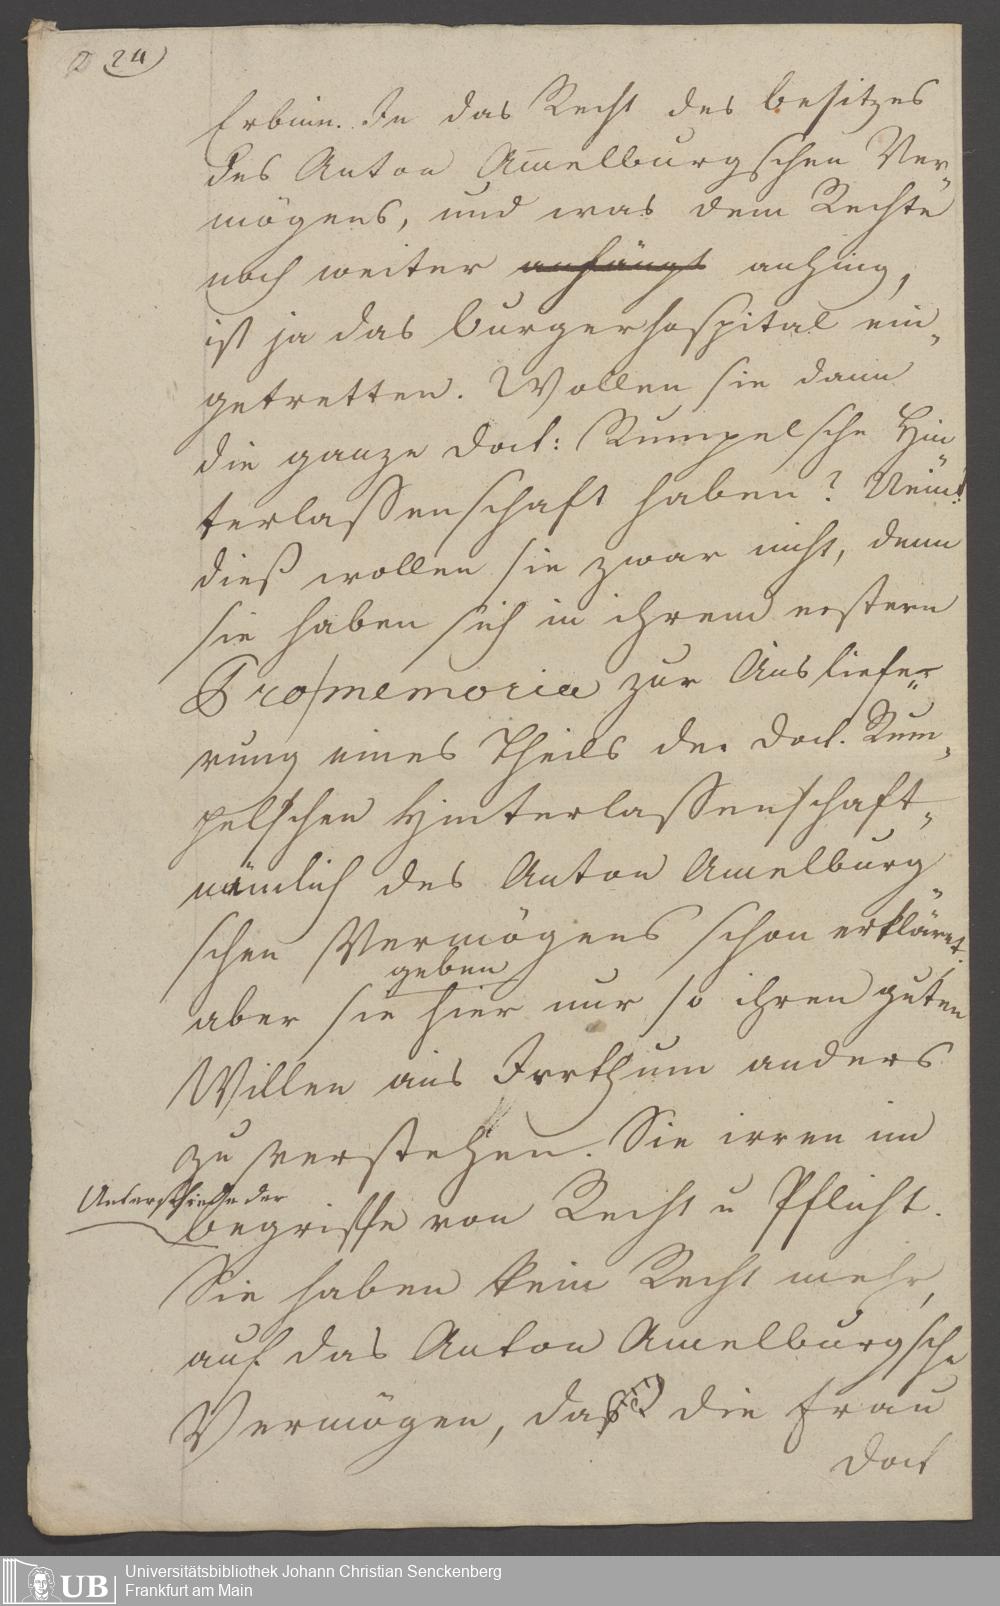 24)
Erbinn. In das Recht des besitzes
des Anton Am̅elburgschen Ver„
mögens, und was dem Rechte
noch weiter anhängt anhing,
ist ja das burgerhospital ein„
getretten. Wollen sie dann
die ganze Doct: Rumpelsche Hin„
terlassenschaft haben? Nein!
dieß wollen sie zwar nicht, denn
sie haben sich in ihrem erstern
Pro/memoria zur Ausliefe„
rung eines Theils der Doct. Rum„
pelschen Hinterlassenschaft„
nämlich des Anton Amelburg„
schen Vermögens schon erkläret.
geben
aber sie hier nur so ihren guten
Willen aus Irrthum anders
zu verstehen. Sie irren im
Unterschiede der
begriffe von Recht u Pflicht.
Sie haben kein Recht mehr,
auf das Anton Amelburgsche
Vermögen, daß die Frau
Doct
Universitätsbibliothek Johann Christian Senckenberg
Frankfurt am Main
UB